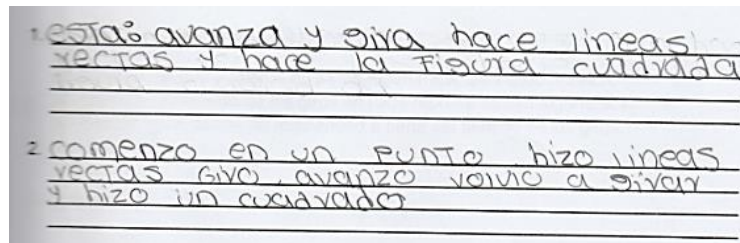 1. esta: avanza y gira hace lineas
rectas y hace la figura cuadrada
2 comenzo en un punto hizo lineas
rectas Giro, avanzo volvio a girar
y hizo un cuadrado